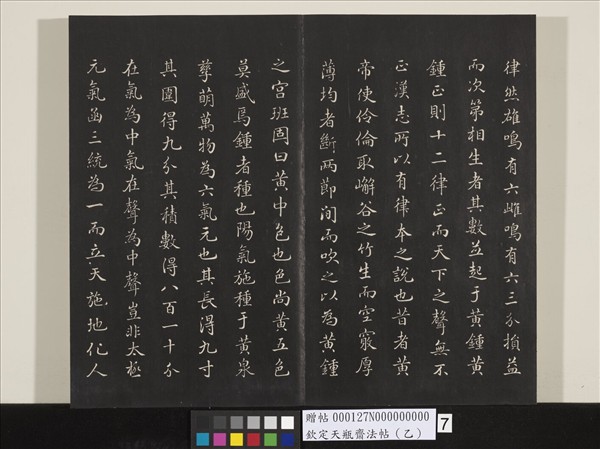 律然雄鳴有六雌鳴有六三分損益
而次第相生者其數並起于黃鍾黃
鍾正則十二律正而天下之聲無不
正漢志所以有律本之說也昔者黃
帝使伶倫取嶰谷之竹生而空竅厚
薄均者斷兩節間而吹之以為黃鍾
之宮班固曰黃中色也色尚黃五色
莫盛焉鍾者種也陽氣施種于黃泉
孳萌萬物為六氣元也其長得九寸
其圍得九分其積數得八百一十分
在氣為中氣在聲為中聲豈非太極
元氣函三統為一而立天施地化人
贈帖 000127N000000000
欽定天瓶齋法帖（乙）
7